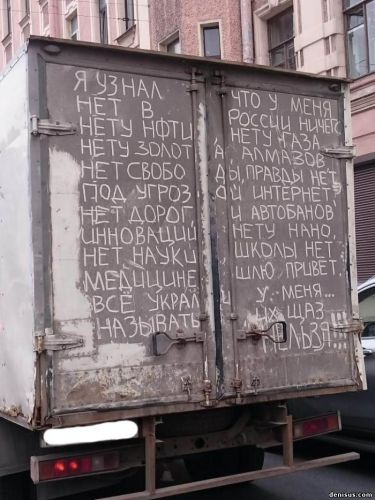 Я УЗНАЛ ЧТО У МЕНЯ
НЕТ В РОССИИ НИЧЕГ
НЕТУ НФТИ НЕТУ ГАЗА
НЕТУ ЗОЛОТА, АЛМАЗОВ
НЕТ СВОБОДЫ, ПРАВДЫ НЕТ,
ПОД УГРОЗОЙ ИНТЕРНЕТ,
НЕТ ДОРОГ И АВТОБАНОВ
ИННОВАЦИЙ НЕТУ НАНО,
НЕТ НАУКИ ШКОЛЫ НЕТ
МЕДИЦИНЕ ШЛЮ ПРИВЕТ.
ВСЁ УКРАЛИ У МЕНЯ...
НАЗЫВАТЬ ИХ ЩАЗ
НЕЛЬЗЯ!!!
denisus.com